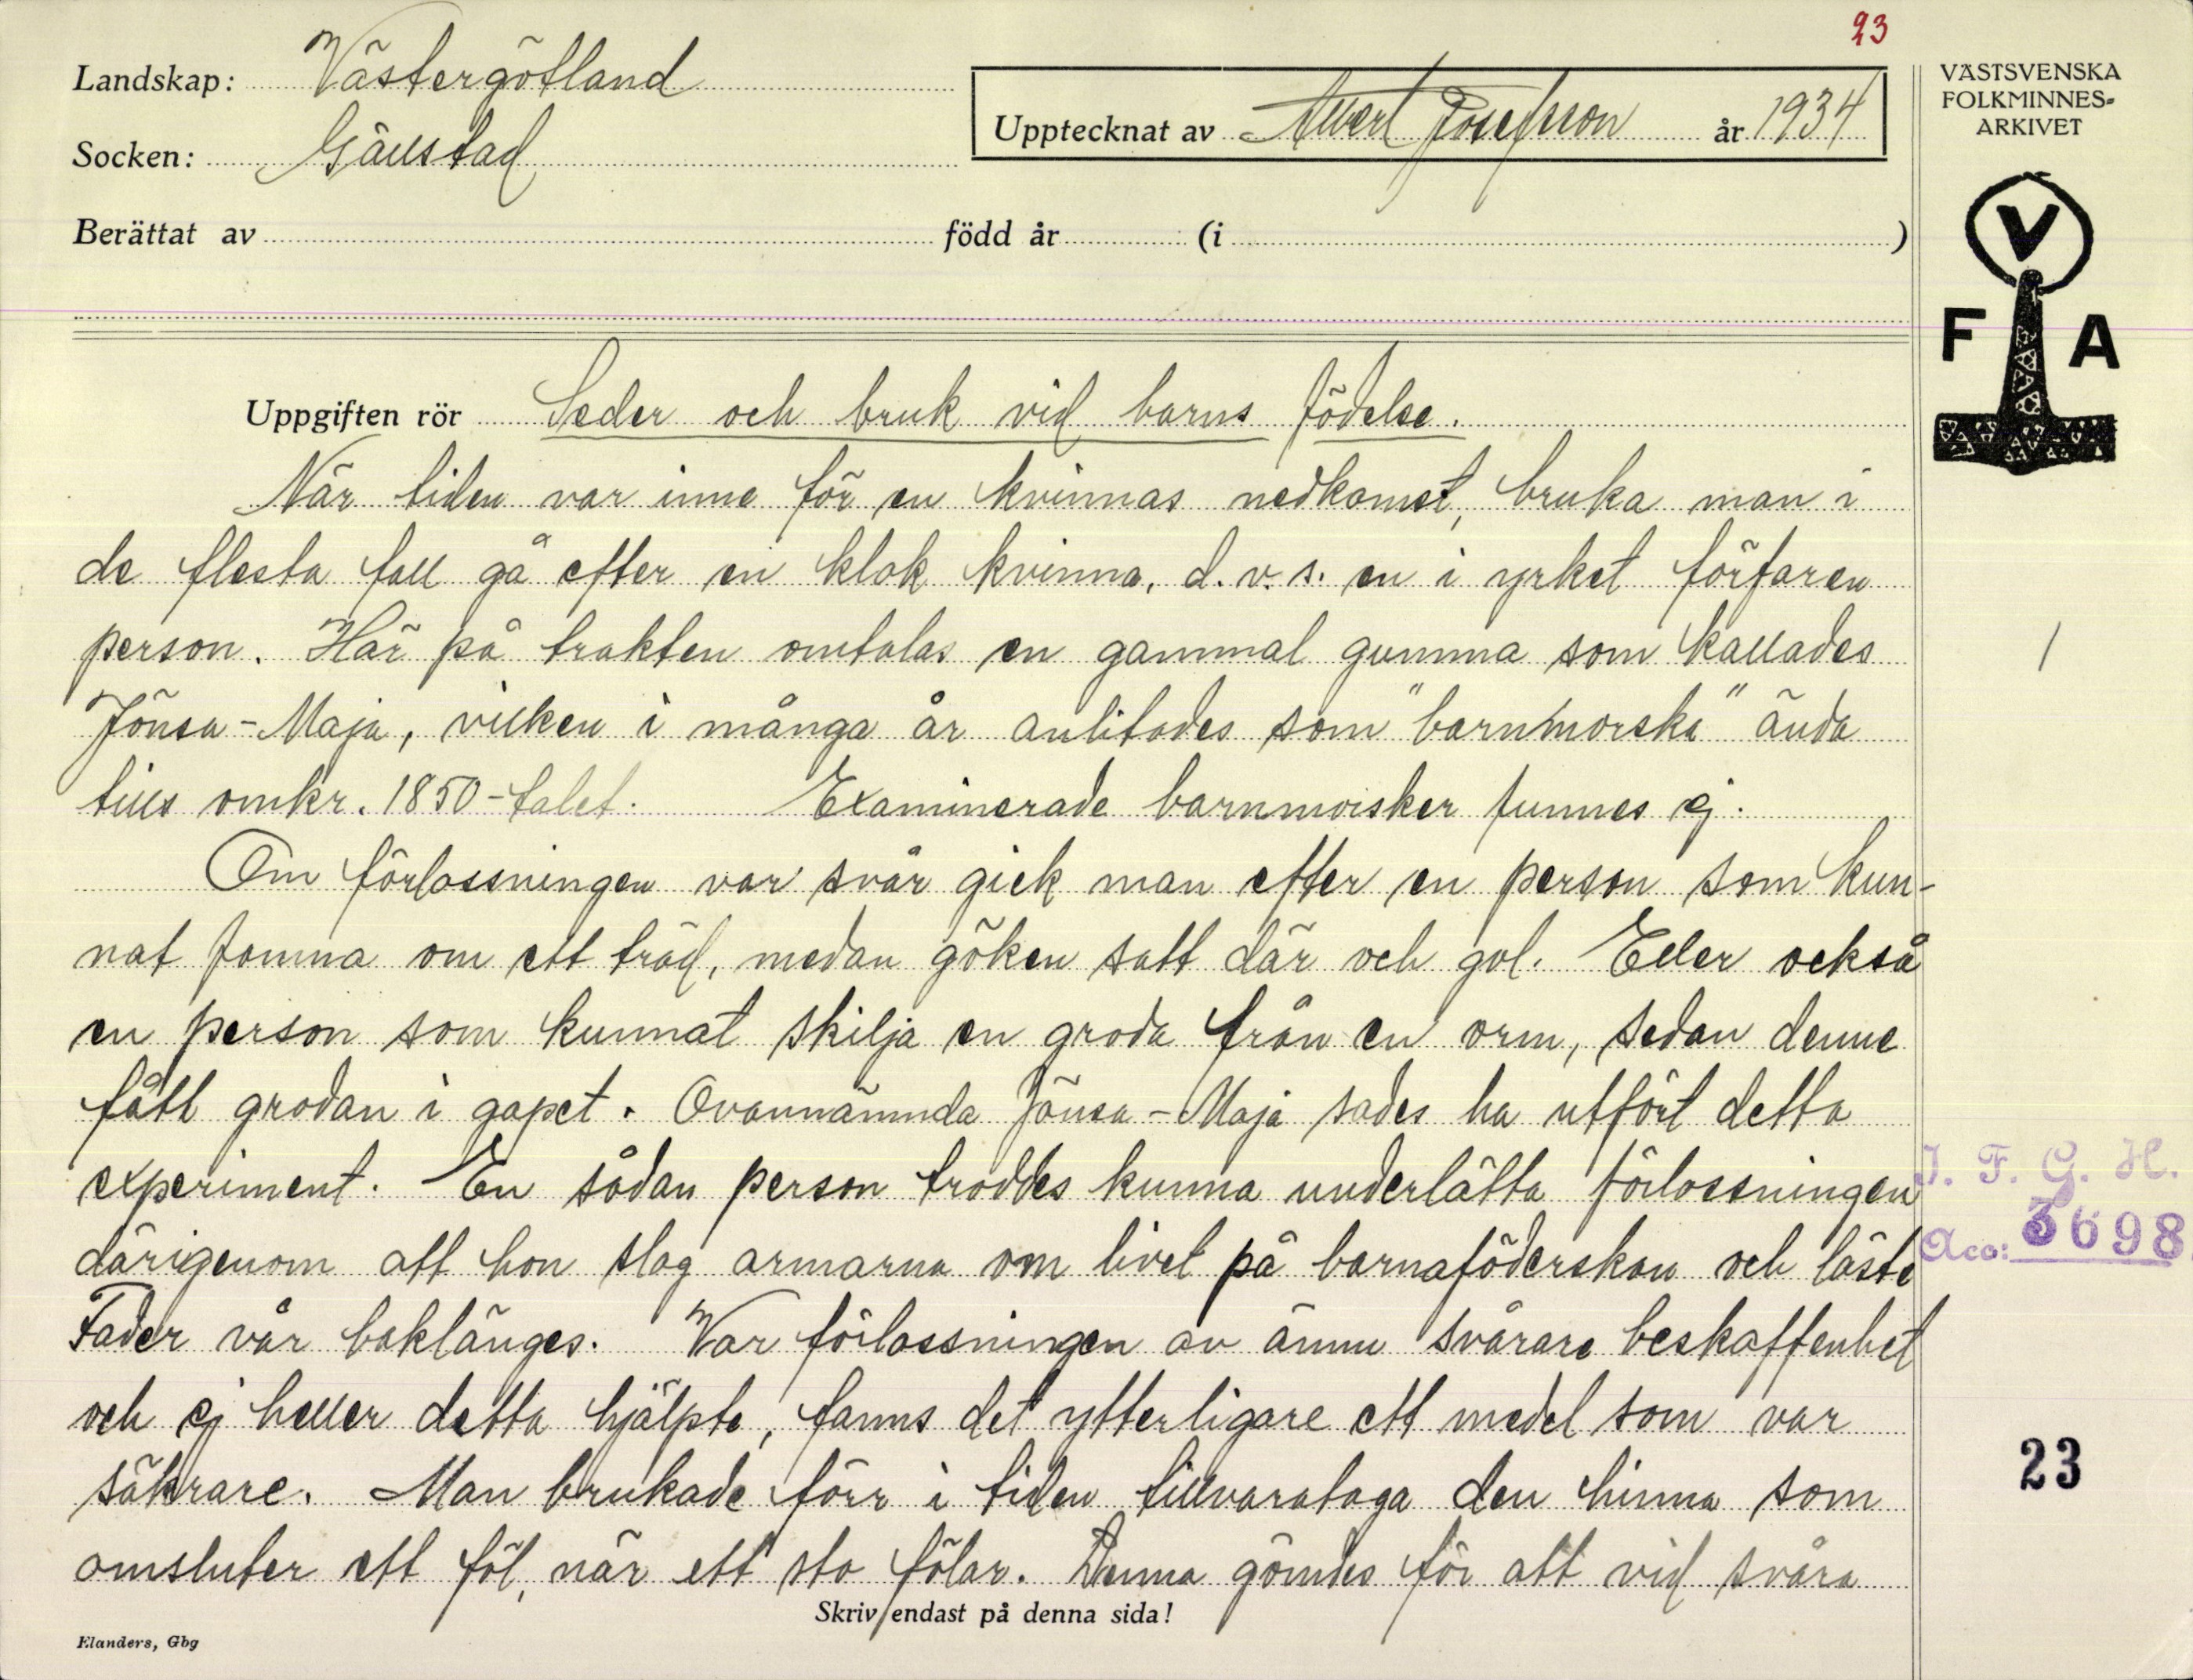 23
Landskap: Västergötland
Socken: Gällstad
Upptecknat av Albert Josefsson år 1934
Berättat av född år (i )
VÄSTSVENSKA
FOLKMINNES-
ARKIVET
V
F A
Uppgiften rör Seder och bruk vid barns födelse.
När tiden var inne för en kvinnas nedkomst, bruka man i
de flesta fall gå efter en klok kvinna, d.v.s. en i yrket förfaren
person. Här på trakten omtalas en gammal gumma som kallades
Jönsa-Maja, vilken i många år anlitades som "barnmorska" ända
tills omkr. 1850-talet. Examinerade barnmorsker funnes ej.
Om förlossningen var svår gick man efter en person som kun-
nat famna om ett träd, medan göken satt där och gol. Eller också
en person som kunnat skilja en groda från en orm, sedan denne
fått grodan i gapet. Ovannämnda Jönsa-Maja sades ha utfört detta
experiment. En sådan person troddes kunna underlätta förlossningen
därigenom att hon slog armarna om livet på barnaföderskan och läste
Fader vår baklänges. Var förlossningen av ännu svårare beskaffenhet
och ej heller detta hjälpte, fanns det ytterligare ett medel som var
säkrare. Man brukade förr i tiden tillvarataga den hinna som
omsluter ett föl, när ett sto fölar. Denna gömdes för att vid svåra
1
I. F. G. H.
Acc: 3698
23
Skriv endast på denna sida!
Elanders, Gbg